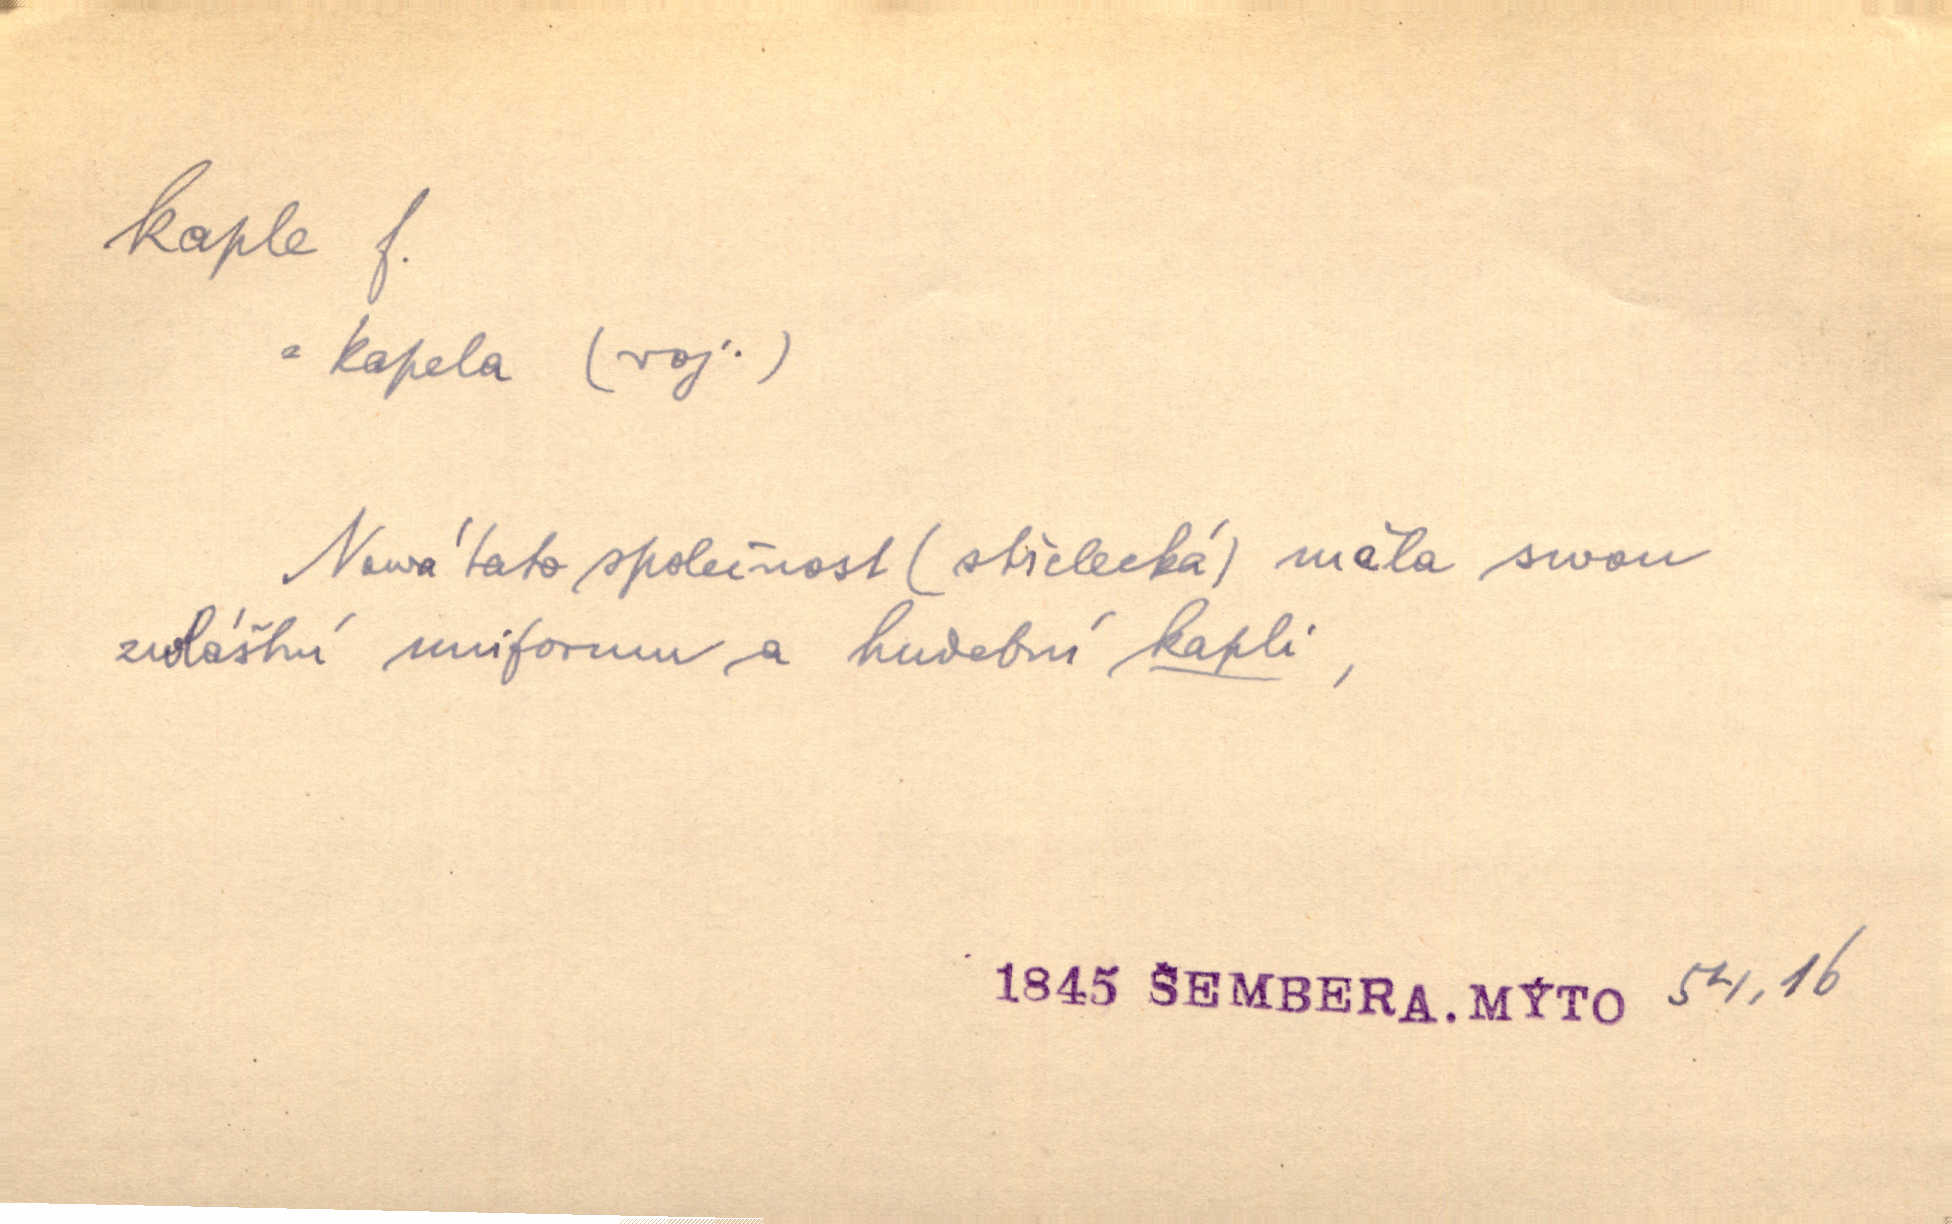 kaple f.
= kapela (voj.)
Nowá tato společnost (střelecká) měla swou
zwláštní uniformu a hudební kapli,
1845 ŠEMBERA. MÝTO 54, 16